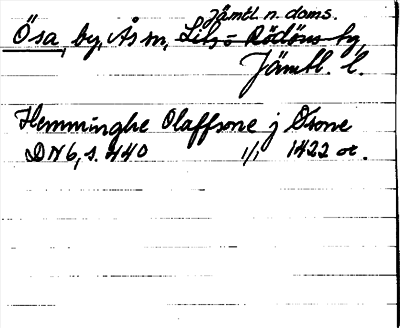 Jämtl. n. doms.
Ösa, by, Ås sn, Lits- o Rödöns tg,
Jämtl. l.
Hemminghe Olaffsone j Osone
DN 6, s. 440 1/1 1422 or.